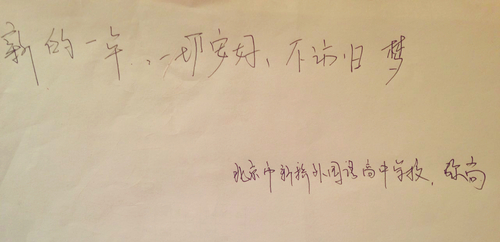 新的一年，一切安好，不访旧梦
北京中新桥外国语高中学校，